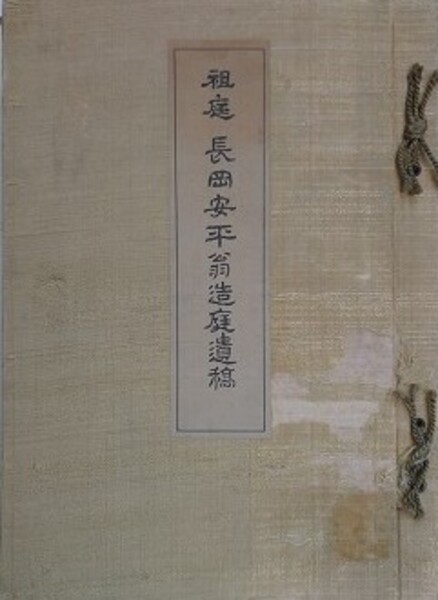 祖庭 長岡安平翁造庭遺稿